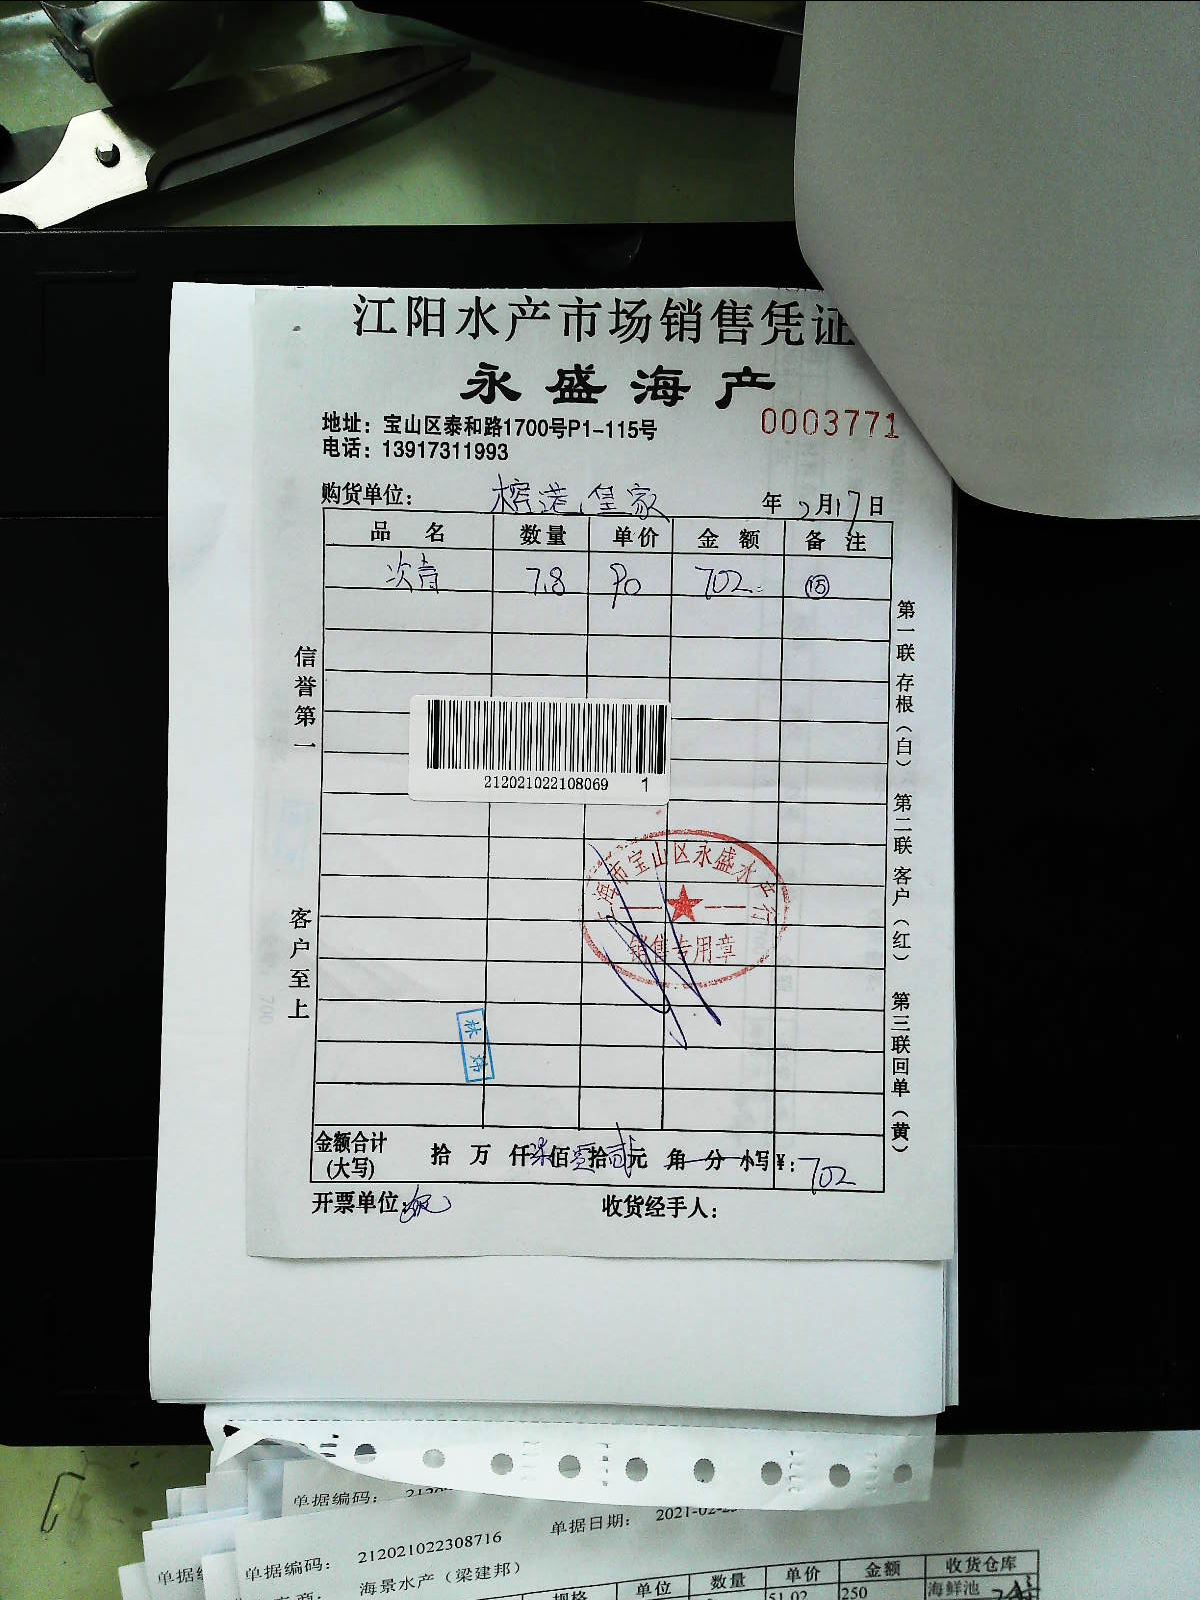 江阳水产市场销售凭证
永盛海产
地址：宝山区泰和路1700号P1-115号
0003771
电话：13917311993
购货单位： 榕港皇家 年 2月17日
品名 数量 单价 金额 备注
次青 7.8 90 702 ⑮
信誉第一
客户至上
第一联存根（白） 第二联客户（红） 第三联回单（黄）
212021022108069 1
上海市宝山区永盛水产行
销售专用章
林炜
金额合计(大写) 拾 万 仟 柒佰 零拾 贰元 角 分 小写¥：702
开票单位： 收货经手人：
单据编码：
单据日期： 2021-02-2
单据编码： 212021022308716
海景水产（梁建邦）
规格 单位 数量 单价 金额 收货仓库
51.02 250 海鲜池